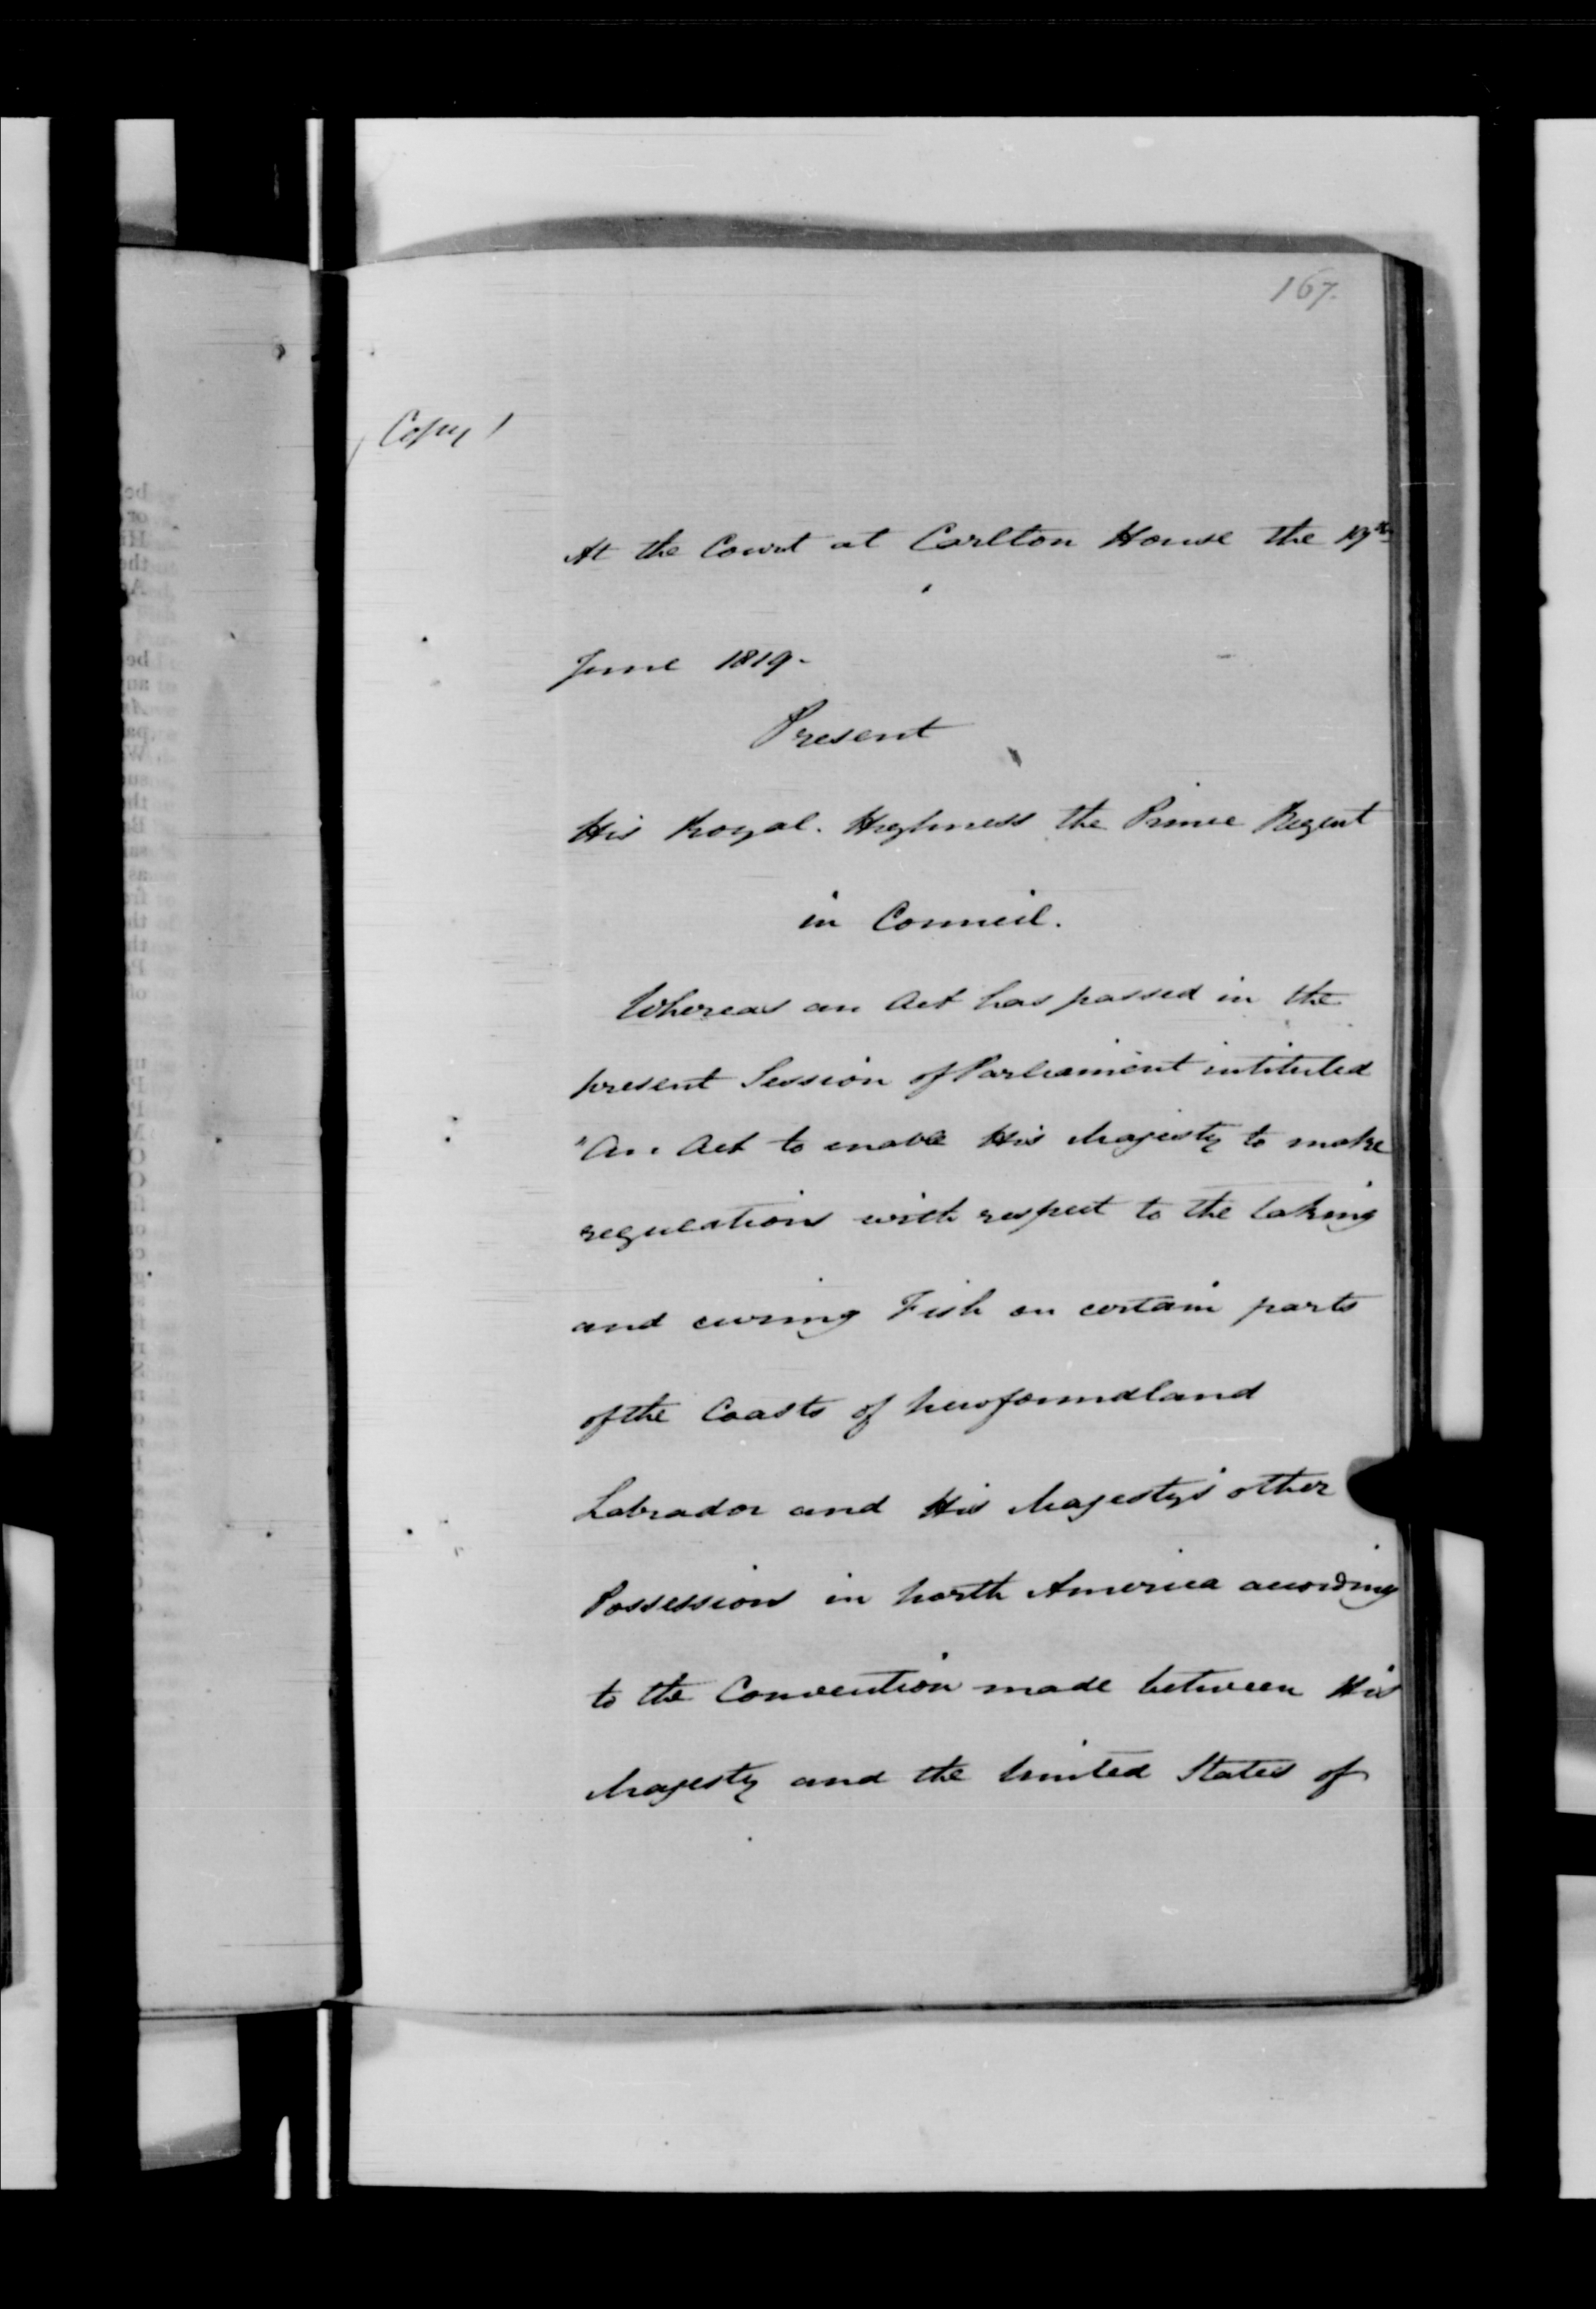 167.
Copy
At the Court at Carlton House the 19th
June 1819.
Present
His Royal Highness the Prince Regent
in Council.
Whereas an Act has passed in the
present Session of Parliament intituled
"An Act to enable His Majesty to make
regulations with respect to the taking
and curing Fish on certain parts
of the Coasts of Newfoundland
Labrador and His Majesty's other
Possessions in North America according
to the Convention made between His
Majesty and the United States of